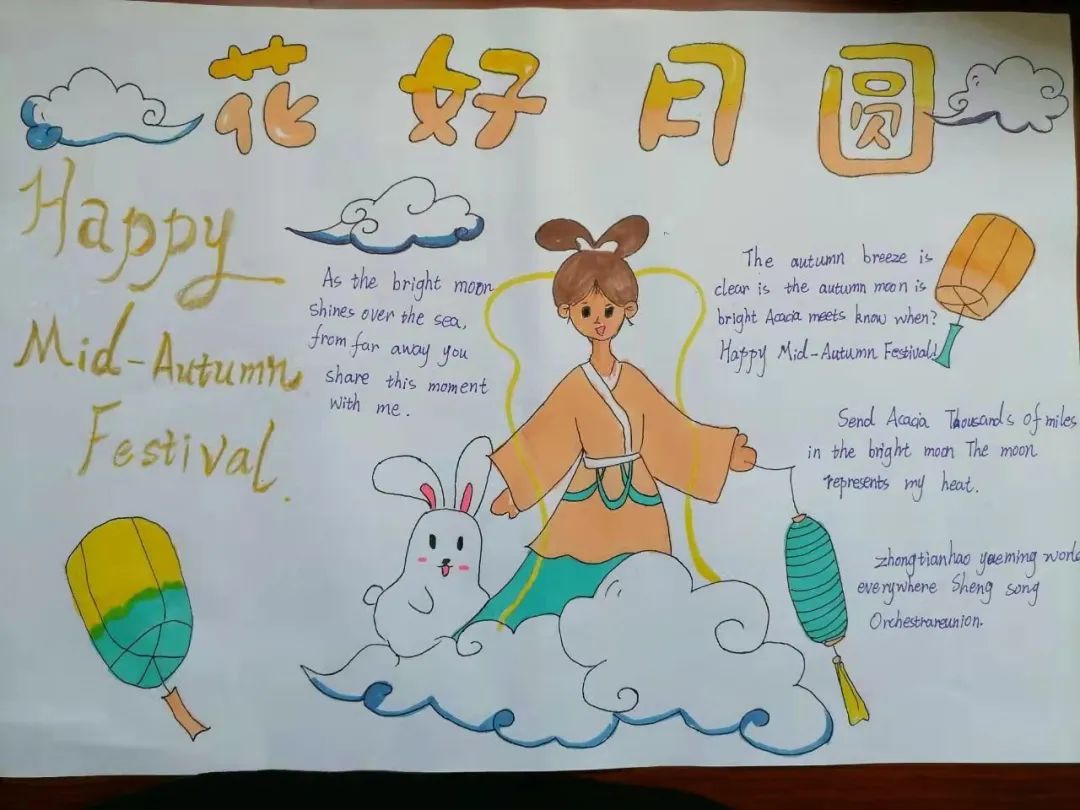 花好月圆
Happy
Mid-Autumn
Festival.
As the bright moon
shines over the sea,
from far away you
share this moment
with me.
The autumn breeze is
clear is the autumn moon is
bright Acacia meets know when?
Happy Mid-Autumn Festival!
Send Acacia Thousands of miles
in the bright moon The moon
represents my heat.
zhongtianhao yueming world
everywhere Sheng song
Orchestrareunion.